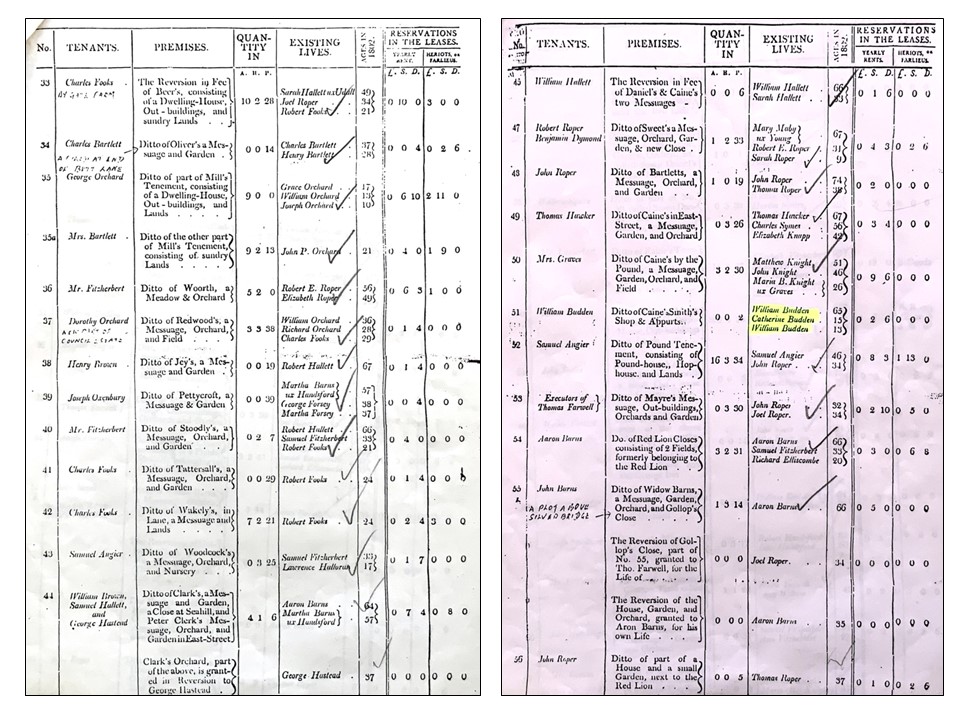 No. TENANTS. PREMISES. QUAN-TITY IN EXISTING LIVES. AGES IN 1802. RESERVATIONS IN THE LEASES.
YEARLY RENT. HERIOTS, or FARLIEUS.
A. R. P. £. S. D. £. S. D.
33 Charles Fooks . The Reversion in Fee
BY GORE FARM of Beer's, consisting Sarah Hallett ux Udall 49
of a Dwelling-House, 10 2 28 Joel Roper 34 0 10 0 3 0 0
Out-buildings, and Robert Fooks 21
sundry Lands . . .
34 Charles Bartlett Ditto of Oliver's a Mes- 0 0 14 Charles Bartlett 37 0 0 4 0 2 6
suage and Garden . . Henry Bartlett 28
35 George Orchard Ditto of part of Mill's
Tenement, consisting Grace Orchard 17
of a Dwelling-House, 9 0 0 William Orchard 13 0 6 10 2 11 0
Out-buildings, and Joseph Orchard 10
Lands . . . .
35a Mrs. Bartlett Ditto of the other part
of Mill's Tenement, 9 2 13 John P. Orchard 21 0 4 0 1 9 0
consisting of sundry
Lands . . . .
36 Mr. Fitzherbert Ditto of Woorth, a 5 2 0 Robert E. Roper 56 0 6 3 1 0 0
Meadow & Orchard Elizabeth Roper 49
37 Dorothy Orchard Ditto of Redwood's, a William Orchard 36
Messuage, Orchard, 3 3 38 Richard Orchard 28 0 1 4 0 0 0
and Garden . . Charles Fooks 29
38 Henry Brown Ditto of Jey's, a Mes- 0 0 19 Robert Hallett 67 0 1 4 0 0 0
suage and Garden .
39 Joseph Oxenbury Ditto of Pettycroft, a Martha Barns
Messuage & Garden 0 0 39 ux Hundsford 57
George Forsey 38 0 0 4 0 0 0
Martha Forsey 37
40 Mr. Fitzherbert Ditto of Stoodly's, a Robert Hallett 66
Messuage, Orchard, 0 2 7 Samuel Fitzherbert 33 0 4 0 0 0 0
and Garden . . Robert Fooks 21
41 Charles Fooks Ditto of Tattersall's, a
Messuage, Orchard, 0 0 29 Robert Fooks 24 0 1 4 0 0 0
and Garden . . .
42 Charles Fooks Ditto of Wakely's, in
Lane, a Messuage and 7 2 21 Robert Fooks 24 0 2 4 3 0 0
Lands . . . .
43 Samuel Angier Ditto of Woodcock's
a Messuage, Orchard, 0 3 25 Samuel Fitzherbert 33 0 1 7 0 0 0
and Nursery . . Lawrence Halloran 17
44 William Brown, Ditto of Clark's, a Mes-
Samuel Hallett, suage and Garden, Aaron Barns 64
and a Close at Seahill, and 4 1 6 Martha Barns 0 7 4 0 8 0
George Hustead Peter Clerk's Mes- ux Hundsford 57
suage, Orchard, and
Garden in East-Street
Clark's Orchard, part
of the above, is grant- George Hustead 37 0 0 0 0 0 0
ed in Reversion to
George Hustead .
No. TENANTS. PREMISES. QUAN-TITY IN EXISTING LIVES. AGES IN 1802. RESERVATIONS IN THE LEASES.
YEARLY RENTS. HERIOTS, or FARLIEUS.
A. R. P. £. S. D. £. S. D.
William Hallett The Reversion in Fee William Hallett 66
of Daniel's & Caine's 0 0 6 Sarah Hallett 0 1 6 0 0 0
two Messuages -
47 Robert Roper Ditto of Sweet's a Mes- Mary Moby
Benjamin Dymond suage, Orchard, Gar- 1 2 33 ux Young 67
den, & new Close . Robert E. Roper 31 0 4 3 0 2 6
Sarah Roper 9
48 John Roper Ditto of Bartletts, a John Roper 74
Messuage, Orchard, 1 0 19 Thomas Roper 38 0 2 0 0 0 0
and Garden . . .
49 Thomas Hawker Ditto of Caine's in East- Thomas Hawker 67
Street, a Messuage, 0 3 26 Charles Symes 56 0 3 4 0 0 0
Garden, and Orchard Elizabeth Knapp
50 Mrs. Graves Ditto of Caine's by the Matthew Knight 51
Pound, a Messuage, 3 2 30 John Knight 46 0 9 6 0 0 0
Garden, Orchard, and Maria B. Knight
Field . . . . ux Graves 26
51 William Budden Ditto of Caine Smith's William Budden 65
Shop & Appurts. 0 0 2 Catherine Budden 15 0 2 6 0 0 0
William Budden 13
52 Samuel Angier Ditto of Pound Tene-
ment, consisting of Samuel Angier 46
Pound-house, Hop- 16 3 34 John Roper 34 0 8 3 1 13 0
house, and Lands
53 Executors of Ditto of Mayre's Mes- John Roper 32
Thomas Farwell suage, Out-buildings, 0 3 30 Joel Roper 34 0 2 10 0 5 0
Orchards and Garden
54 Aaron Barns Do. of Red Lion Closes Aaron Barns 66
consisting of 2 Fields, 3 2 31 Samuel Fitzherbert 33 0 3 0 0 6 8
formerly belonging to Richard Elliscombe 20
the Red Lion .
55 John Barns Ditto of Widow Barns,
a Messuage, Garden, 1 3 14 Aaron Barns 66 0 5 0 0 0 0
A PLOT ABOVE Orchard, and Gollop's
Close . . . .
The Reversion of Gol-
lop's Close, part of 0 0 0 Joel Roper. 34 0 0 0 0 0 0
No. 55, granted to
Tho. Farwell, for the
Life of
The Reversion of the
House, Garden, and
Orchard, granted to 0 0 0 Aaron Barns 35 0 0 0 0 0 0
Aron Barns, for his
own Life . . . .
56 John Roper Ditto of part of a
House and a small
Garden, next to the 0 0 5 Thomas Roper 37 0 1 0 0 2 6
Red Lion . . .